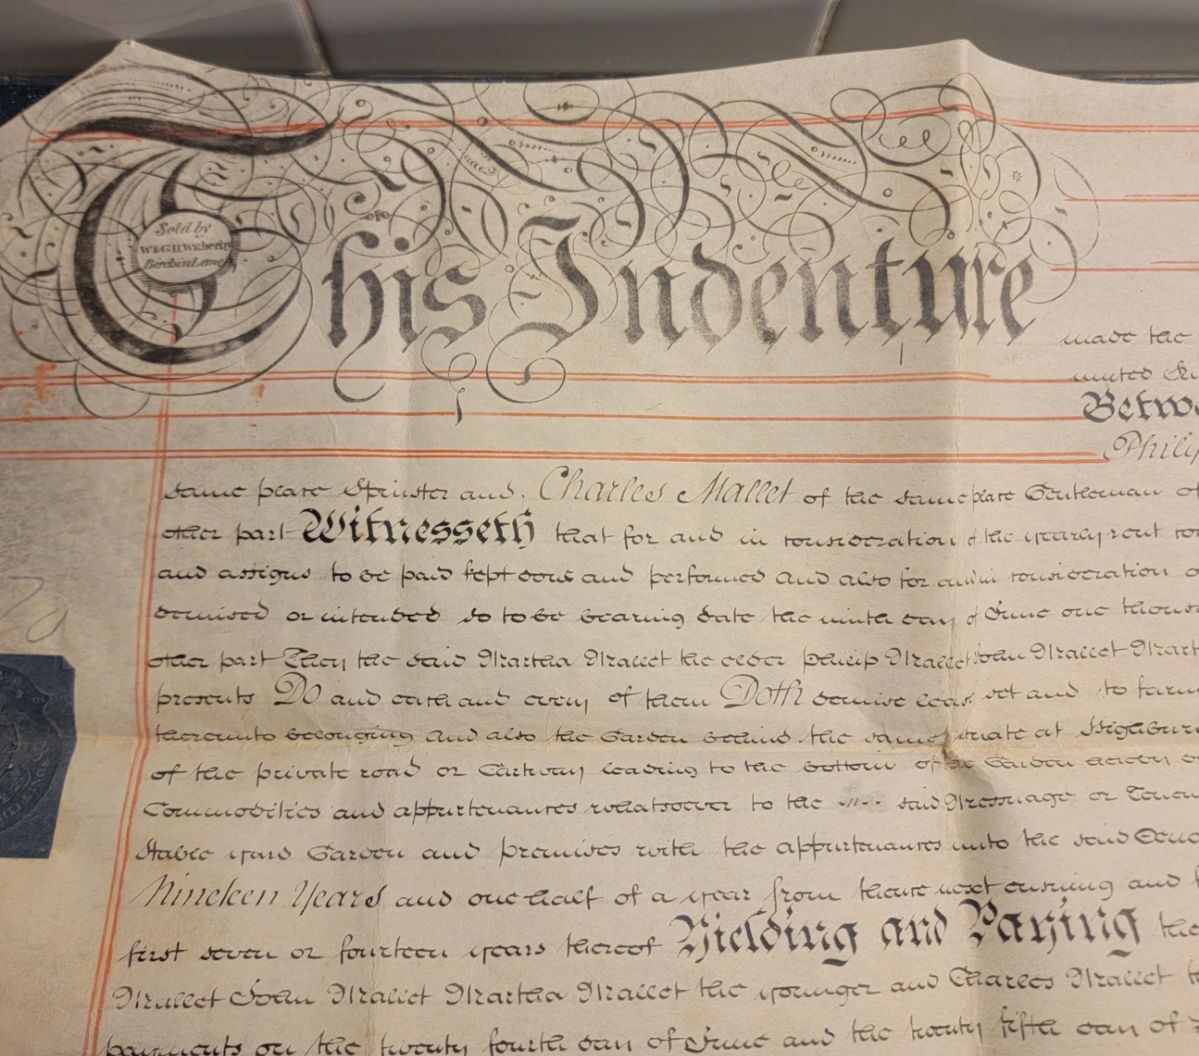 Sold by
W. & G. H. Witherby
Birchin Lane
This Indenture
made the
united Ki
Betwe
Philip
same place Spinster and Charles Mallet of the same place Gentleman of
other part Witnesseth that for and in consideration of the yearly rent
and assigns to be paid kept done and performed and also for and in consideration o
demised or intended so to be bearing date the ninth day of June one thous
other part They the said Martha Mallet the elder Philip Mallet John Mallet Mart
presents Do and each and every of them Doth demise lease set and to farm
thereunto belonging and also the Garden behind the same situate at Highbur
of the private road or Cartway leading to the bottom of the Garden hereby
Commodities and appurtenances whatsoever to the said Messuage or Tenem
Stable yard Garden and premises with the appurtenances unto the said
Nineteen Years and one half of a year from thence next ensuing and
first seven or fourteen years thereof Yielding and Paying the
Mallet John Mallet Martha Mallet the younger and Charles Mallet
payments on the twenty fourth day of June and the twenty fifth day of